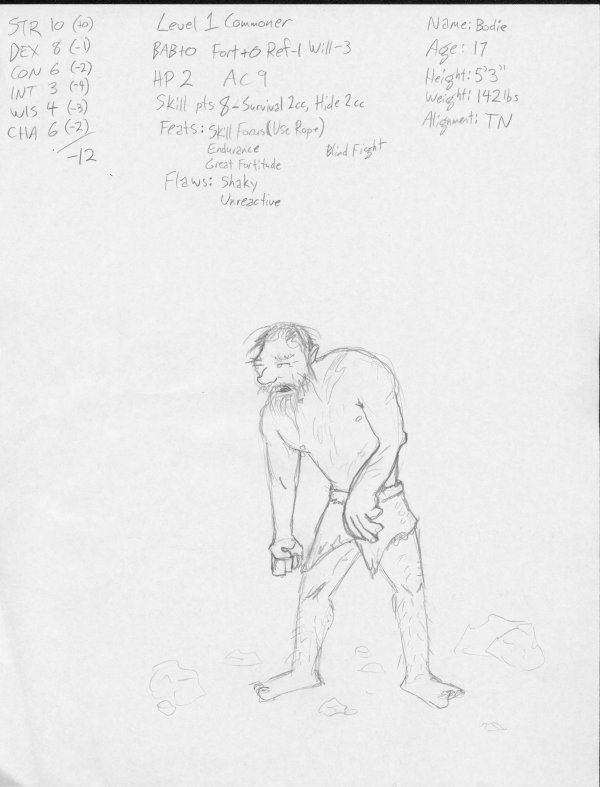 STR 10 (+0)
DEX 8 (-1)
CON 6 (-2)
INT 3 (-4)
WIS 4 (-3)
CHA 6 (-2)
-12
Level 1 Commoner
BAB+0 Fort+0 Ref-1 Will-3
HP 2 AC 9
Skill pts 8 - Survival 2cc, Hide 2cc
Feats: Skill Focus (Use Rope)
Endurance Blind Fight
Great Fortitude
Flaws: Shaky
Unreactive
Name: Bodie
Age: 17
Height: 5'3"
Weight: 142 lbs
Alignment: TN